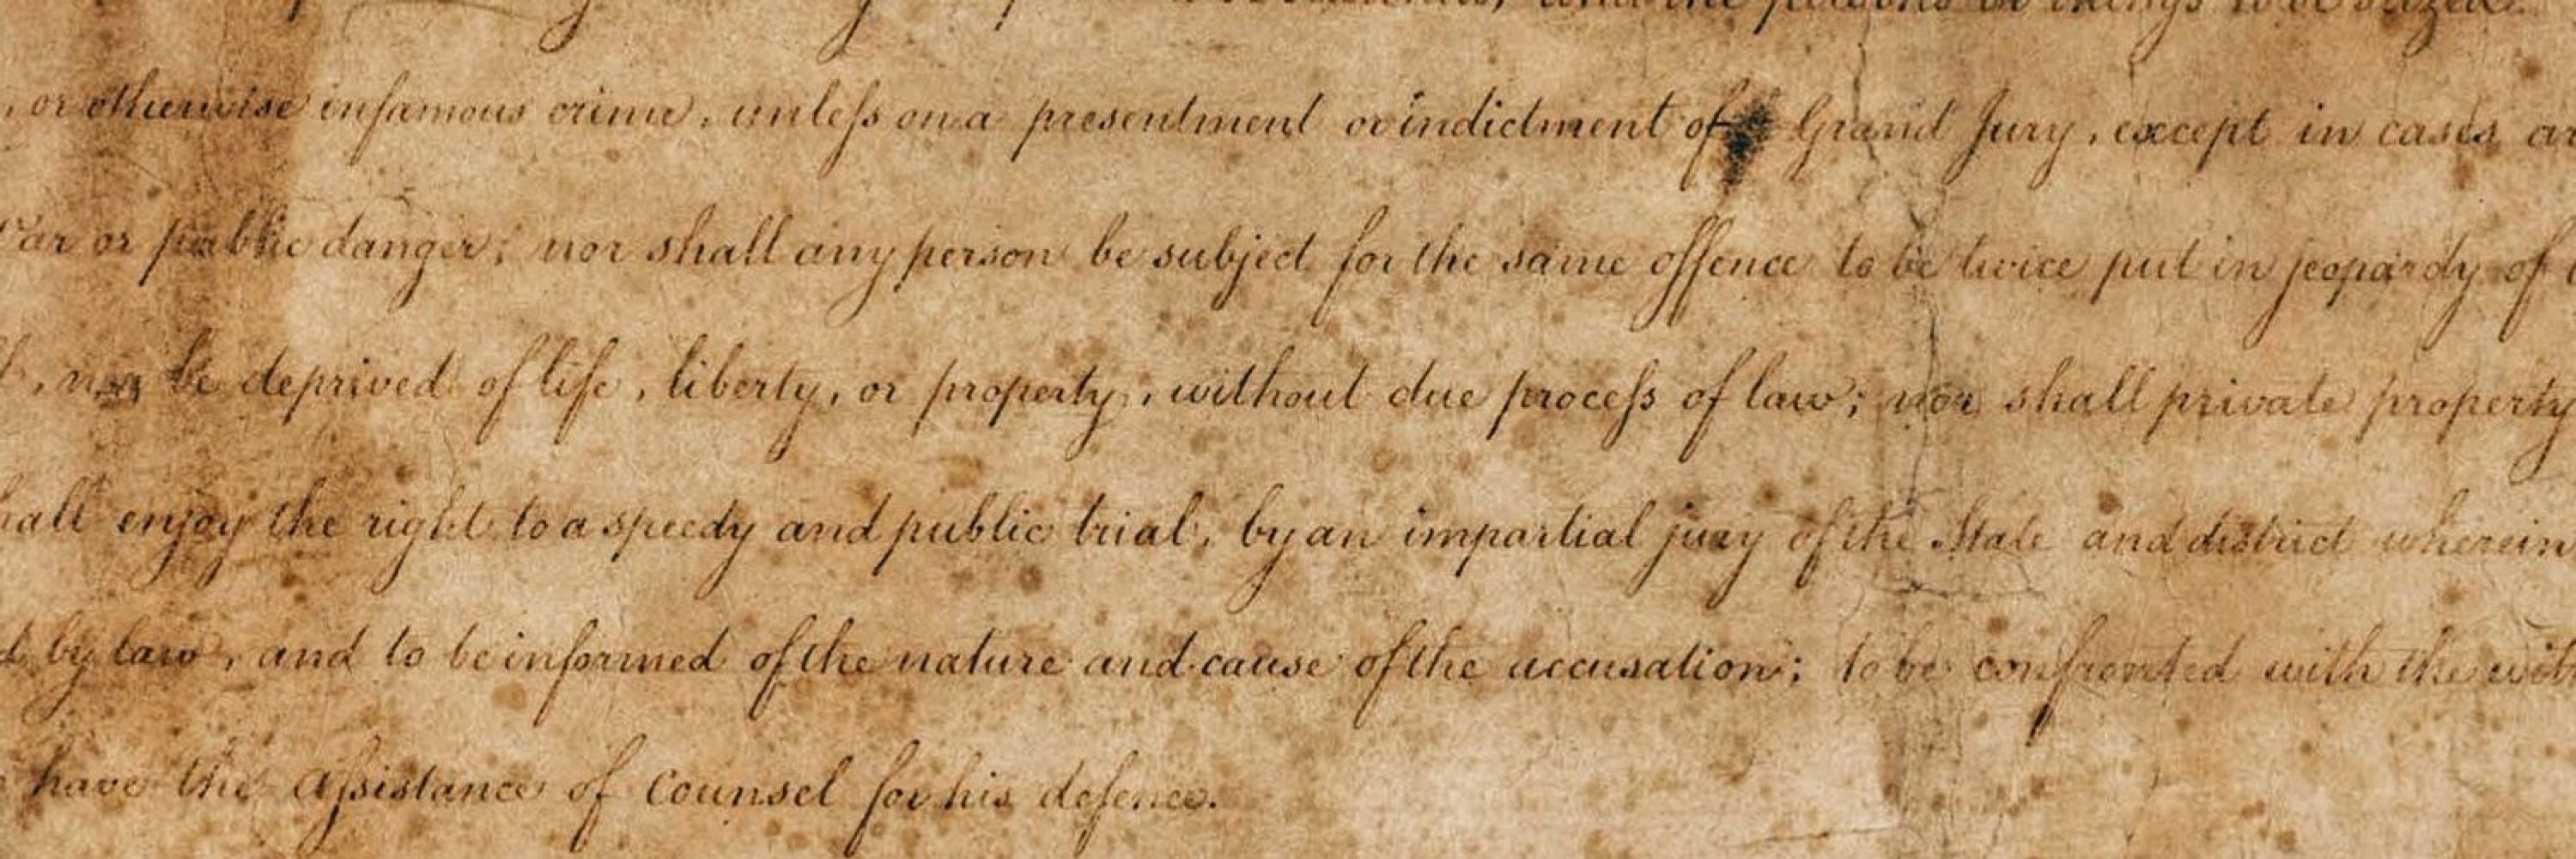 and the persons or things to be seized.
, or otherwise infamous crime, unleſs on a presentment or indictment of Grand Jury, except in cases
or public danger; nor shall any person be subject for the same offence to be twice put in jeopardy of
, nor be deprived of life, liberty, or property, without due proceſs of law; nor shall private property
enjoy the right to a speedy and public trial, by an impartial jury of the State and district wherein
by law, and to be informed of the nature and cause of the accusation; to be confronted with the
have the aſsistance of counsel for his defence.